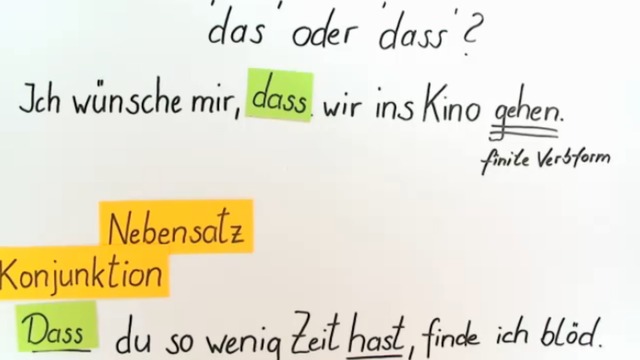 'das' oder 'dass'?
Ich wünsche mir, dass wir ins Kino gehen.
finite Verbform
Nebensatz
Konjunktion
Dass du so wenig Zeit hast, finde ich blöd.